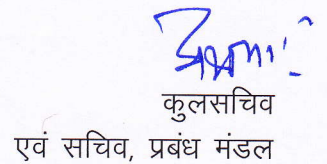 कुलसचिव
एवं सचिव, प्रबंध मंडल